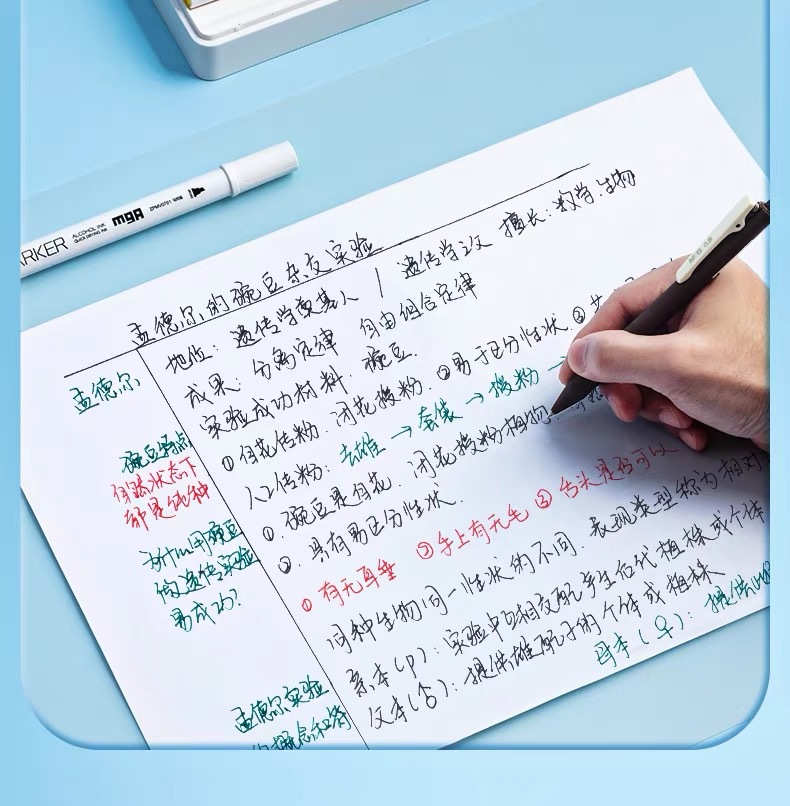 ARKER
ALCOHOL INK
QUICK DRYING INK
M&G
孟德尔的豌豆杂交实验
孟德尔
地位: 遗传学奠基人 / 遗传学之父 擅长: 数学.生物
成果: 分离定律 自由组合定律
实验成功材料. 豌豆.
① 自花传粉. 闭花授粉. ②易于区分性状. ③
人工传粉: 去雄 → 套袋 → 授粉 →
豌豆特点
自然状态下
都是纯种
①. 豌豆是自花. 闭花授粉植物.
②. 具有易区分性状.
为什么用豌豆
做遗传实验
易成功?
① 有无耳垂 ②手上有无毛 ③ 舌头是否可以
同种生物同一性状的不同. 表现类型称为相对
亲本(P): 实验中与相交配产生后代植株或个体
父本(♂): 提供雄配子的个体或植株
母本(♀): 提供
孟德尔实验
的概念和符